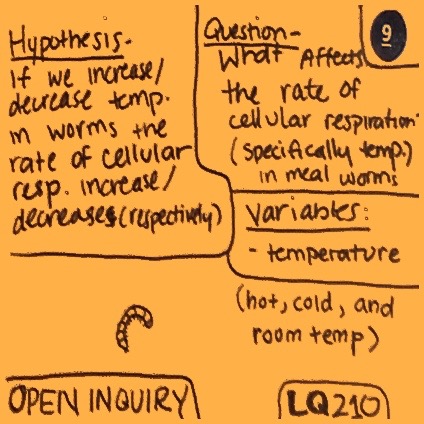 Hypothesis-
If we increase/
decrease temp.
in worms the
rate of cellular
resp. increase/
decreases (respectively)
Question-
What Affects
the rate of
cellular respiration
(specifically temp.)
in meal worms
9
Variables:
- temperature
(hot, cold, and
room temp)
OPEN INQUIRY
LQ210